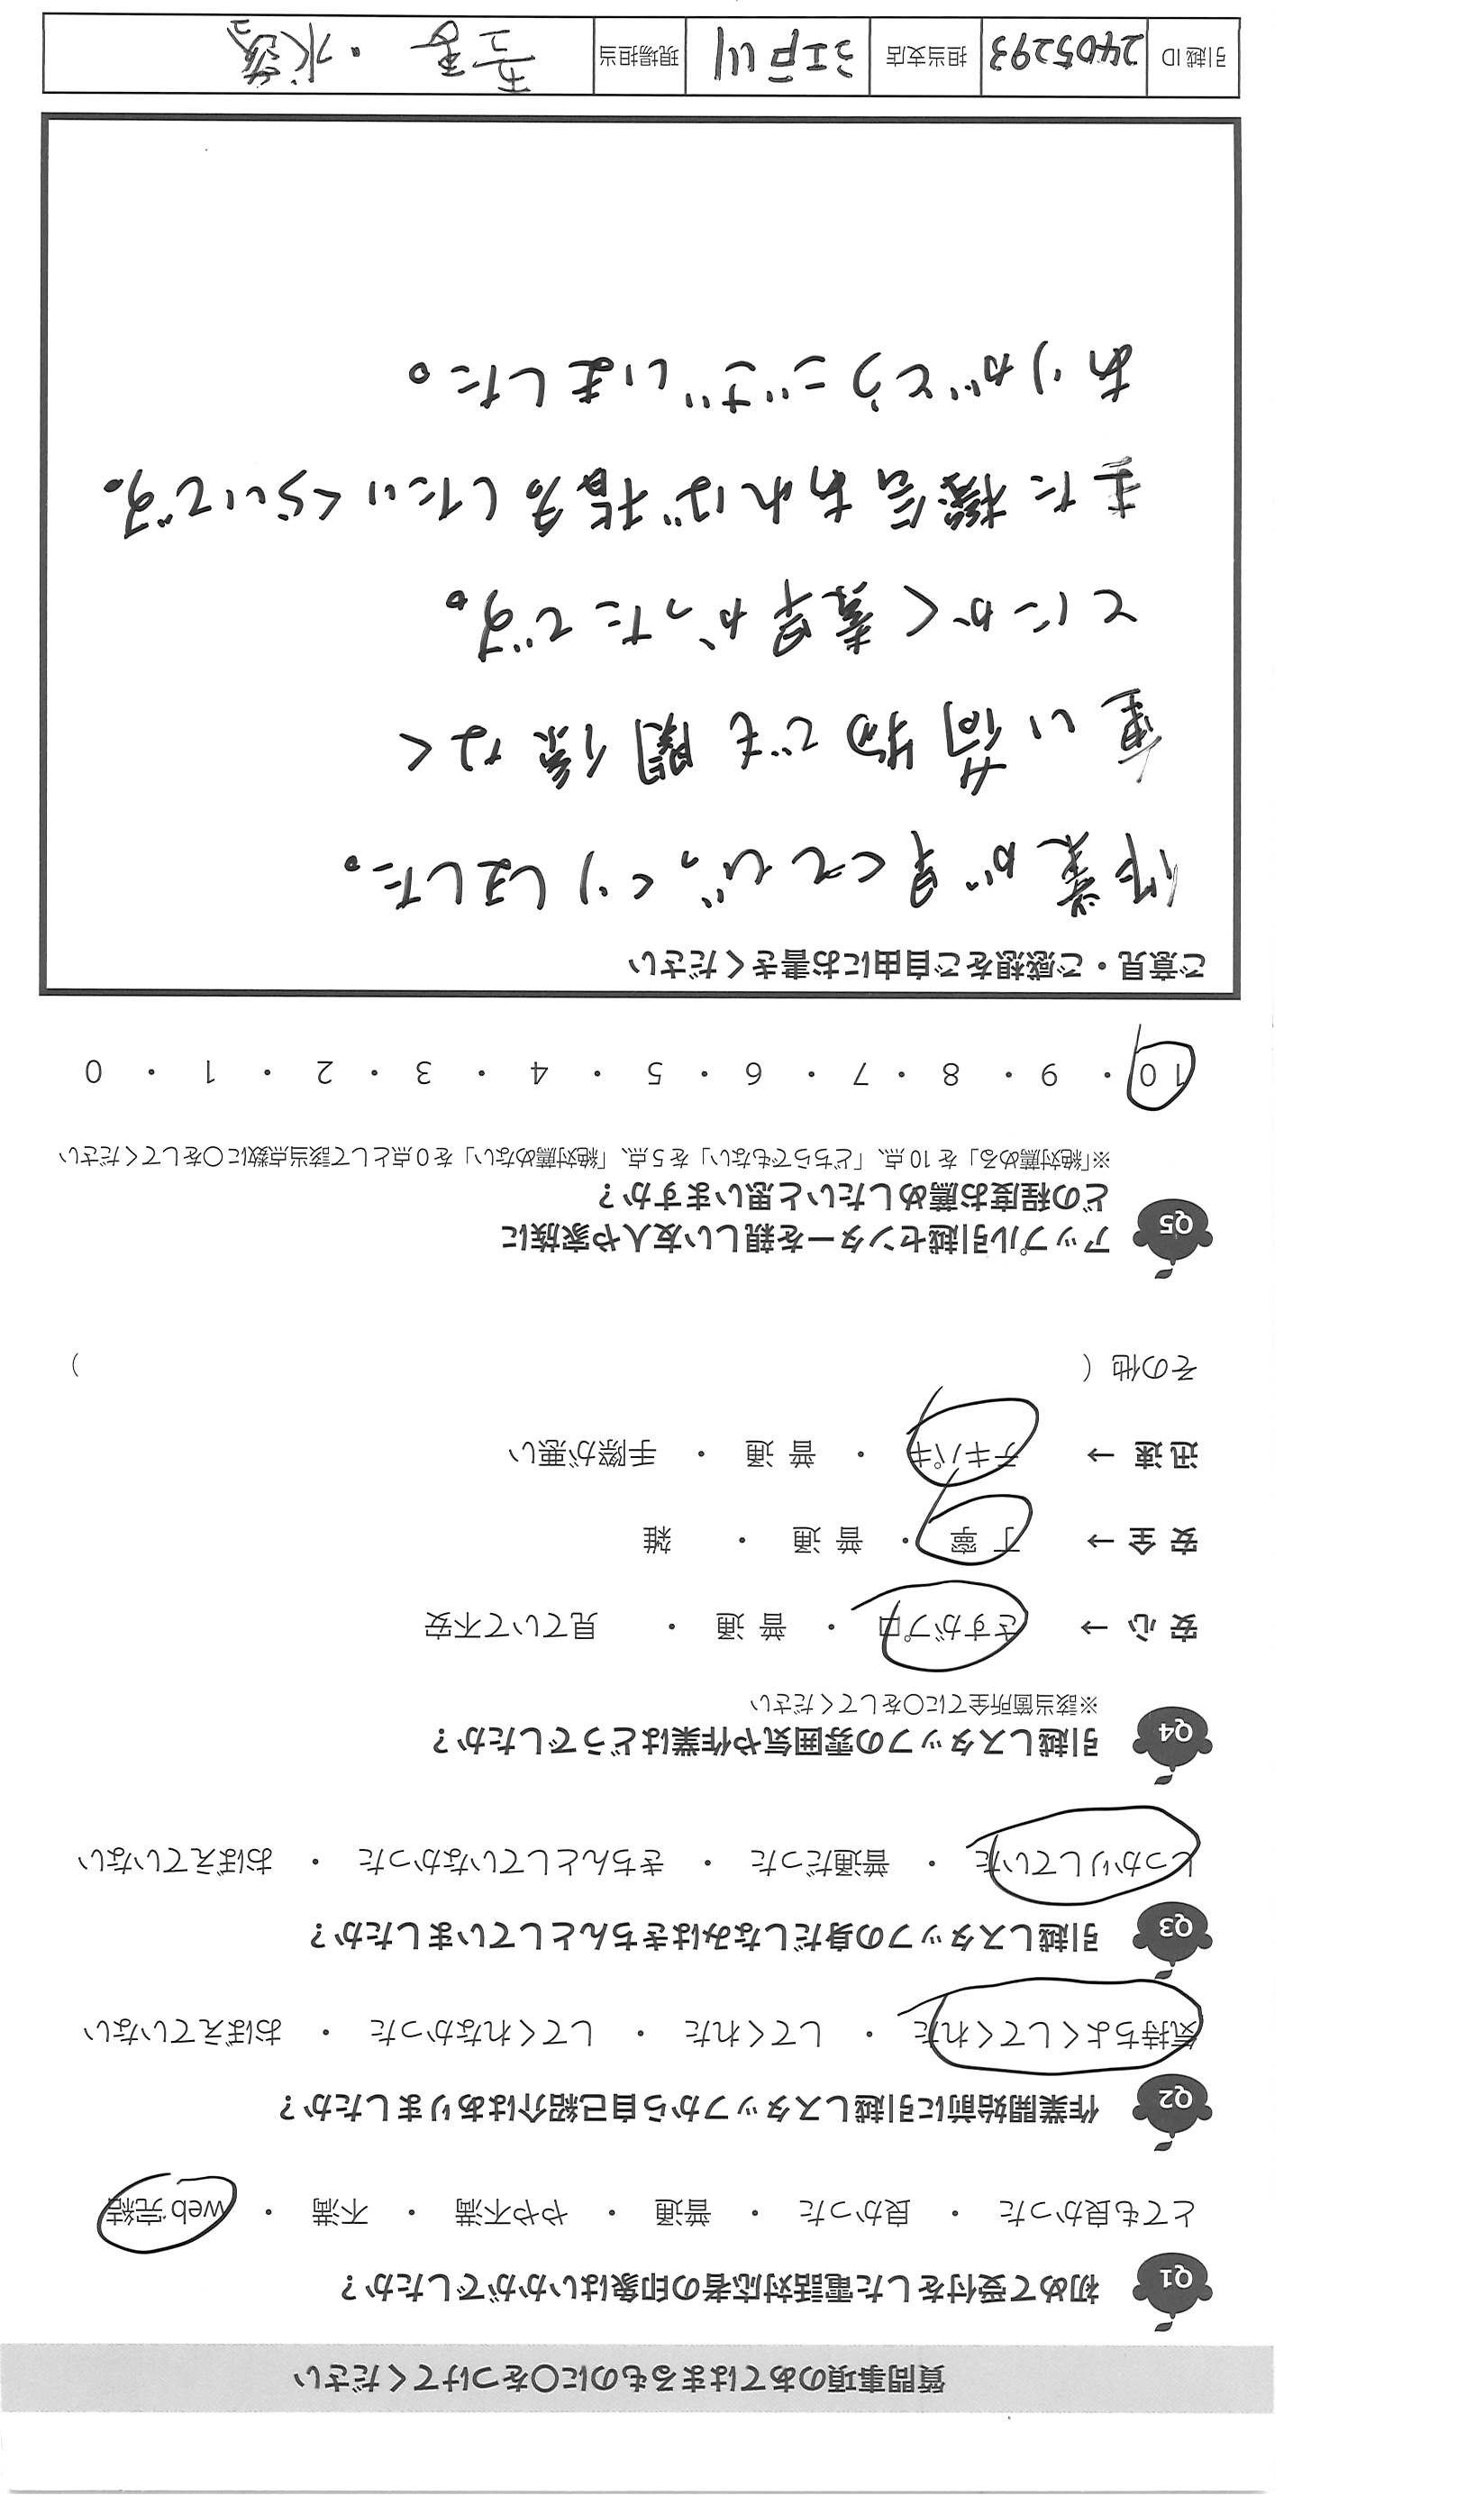 質問事項のあてはまるものに○をつけてください
Q1 初めて受付をした電話対応者の印象はいかがでしたか？
とても良かった ・ 良かった ・ 普通 ・ やや不満 ・ 不満 ・ web完結
Q2 作業開始前に引越しスタッフから自己紹介はありましたか？
気持ちよくしてくれた ・ してくれた ・ してくれなかった ・ おぼえていない
Q3 引越しスタッフの身だしなみはきちんとしていましたか？
しっかりしていた ・ 普通だった ・ きちんとしていなかった ・ おぼえていない
Q4 引越しスタッフの雰囲気や作業はどうでしたか？
※該当箇所全てに○をしてください
安心 → さすがプロ ・ 普通 ・ 見ていて不安
安全 → 丁寧 ・ 普通 ・ 雑
迅速 → テキパキ ・ 普通 ・ 手際が悪い
その他（ ）
Q5 アップル引越センターを親しい友人や家族に
どの程度お薦めしたいと思いますか？
※「絶対薦める」を10点、「どちらでもない」を5点、「絶対薦めない」を0点として該当点数に○をしてください
10 ・ 9 ・ 8 ・ 7 ・ 6 ・ 5 ・ 4 ・ 3 ・ 2 ・ 1 ・ 0
ご意見・ご感想をご自由にお書きください
作業が早くてびっくりしました。
重い荷物でも関係なく
とにかく素早かったです。
また機会あれば指名したいくらいです。
ありがとうございました。
引越ID 2405293 担当支店 江戸川 現場担当